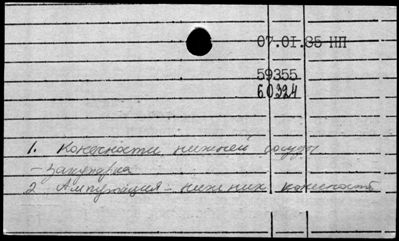 07.01.85 НП
59355
60324
1. Конечности нижней сосуды
- Закупорка
2 Ампутация - нижних конечностей